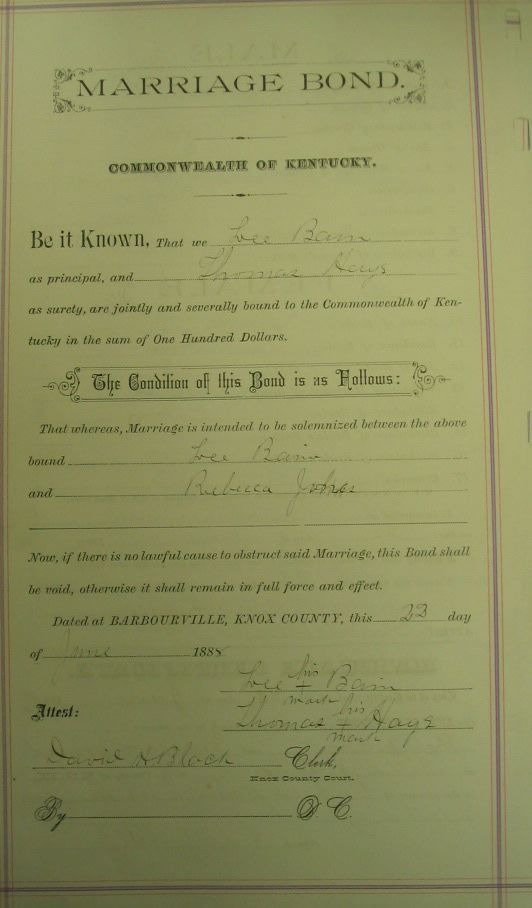 MARRIAGE BOND.
COMMONWEALTH OF KENTUCKY.
Be it Known, That we Lee Bain
as principal, and Thomas Hays
as surety, are jointly and severally bound to the Commonwealth of Ken-
tucky in the sum of One Hundred Dollars.
The Condition of this Bond is as Follows:
That whereas, Marriage is intended to be solemnized between the above
bound Lee Bain
and Rebecca
Now, if there is no lawful cause to obstruct said Marriage, this Bond shall
be void, otherwise it shall remain in full force and effect.
Dated at BARBOURVILLE, KNOX COUNTY, this 23 day
of June 188
his
Lee + Bain
mark
Attest:
his
Thomas + Hays
mark
David H Black Clerk,
Knox County Court.
By D. C.